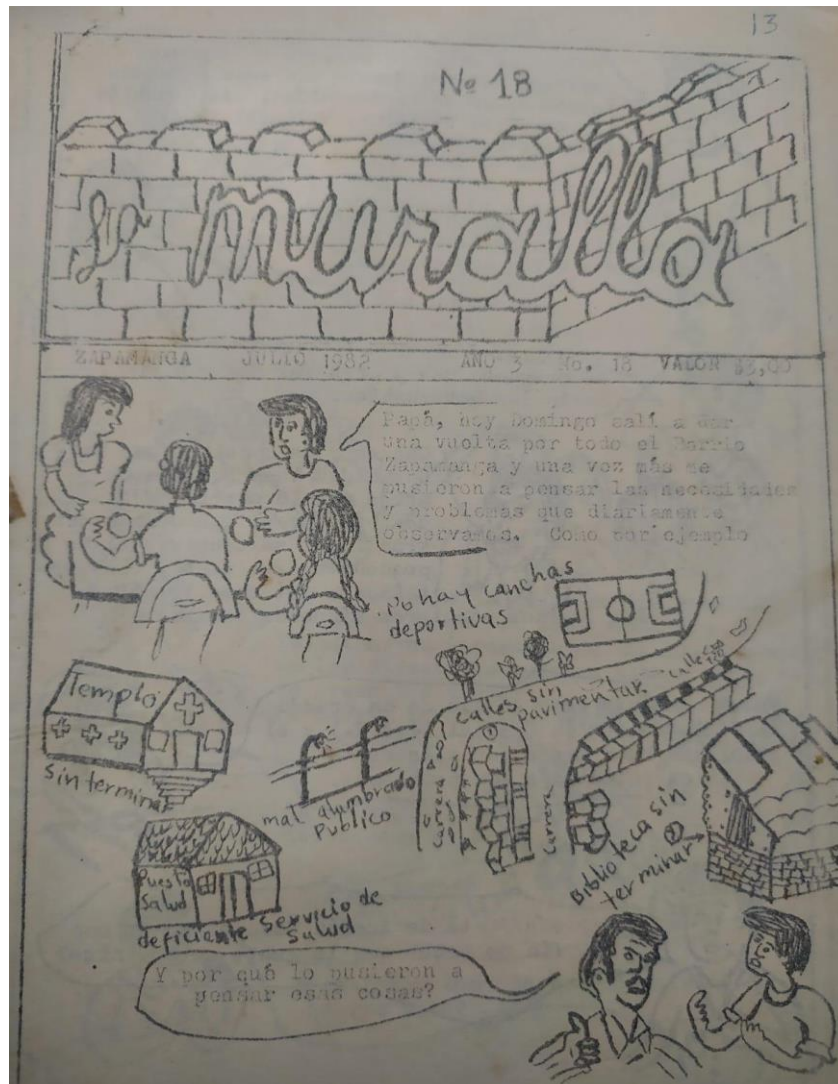 13
Nº 18
La muralla
ZAPAMANGA JULIO 1982 AÑO 3 No. 18 VALOR $3,00
Papá, hoy Domingo salí a dar
una vuelta por todo el Barrio
Zapamanga y una vez más me
pusieron a pensar las necesidades
y problemas que diariamente
observamos. Como por ejemplo
No hay canchas
deportivas
Templo
sin terminar
mal alumbrado
publico
calles sin
pavimentar
Carrera
Carrera
Biblioteca sin
terminar
Puesto
Salud
deficiante servicio de
salud
Y por qué lo pusieron a
pensar esas cosas?